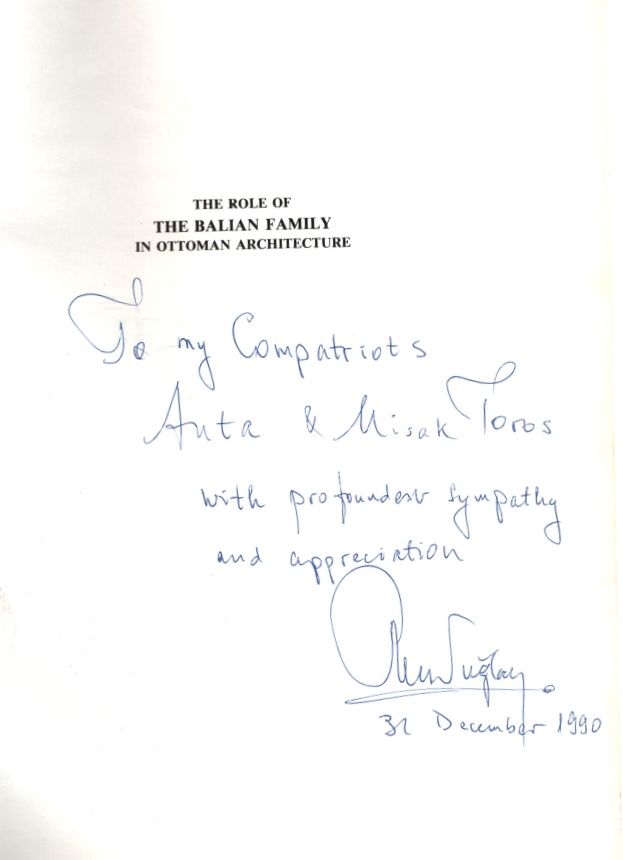 THE ROLE OF
THE BALIAN FAMILY
IN OTTOMAN ARCHITECTURE
To my Compatriots
Anta & Misak Toros
with profoundest sympathy
and appreciation
31 December 1990